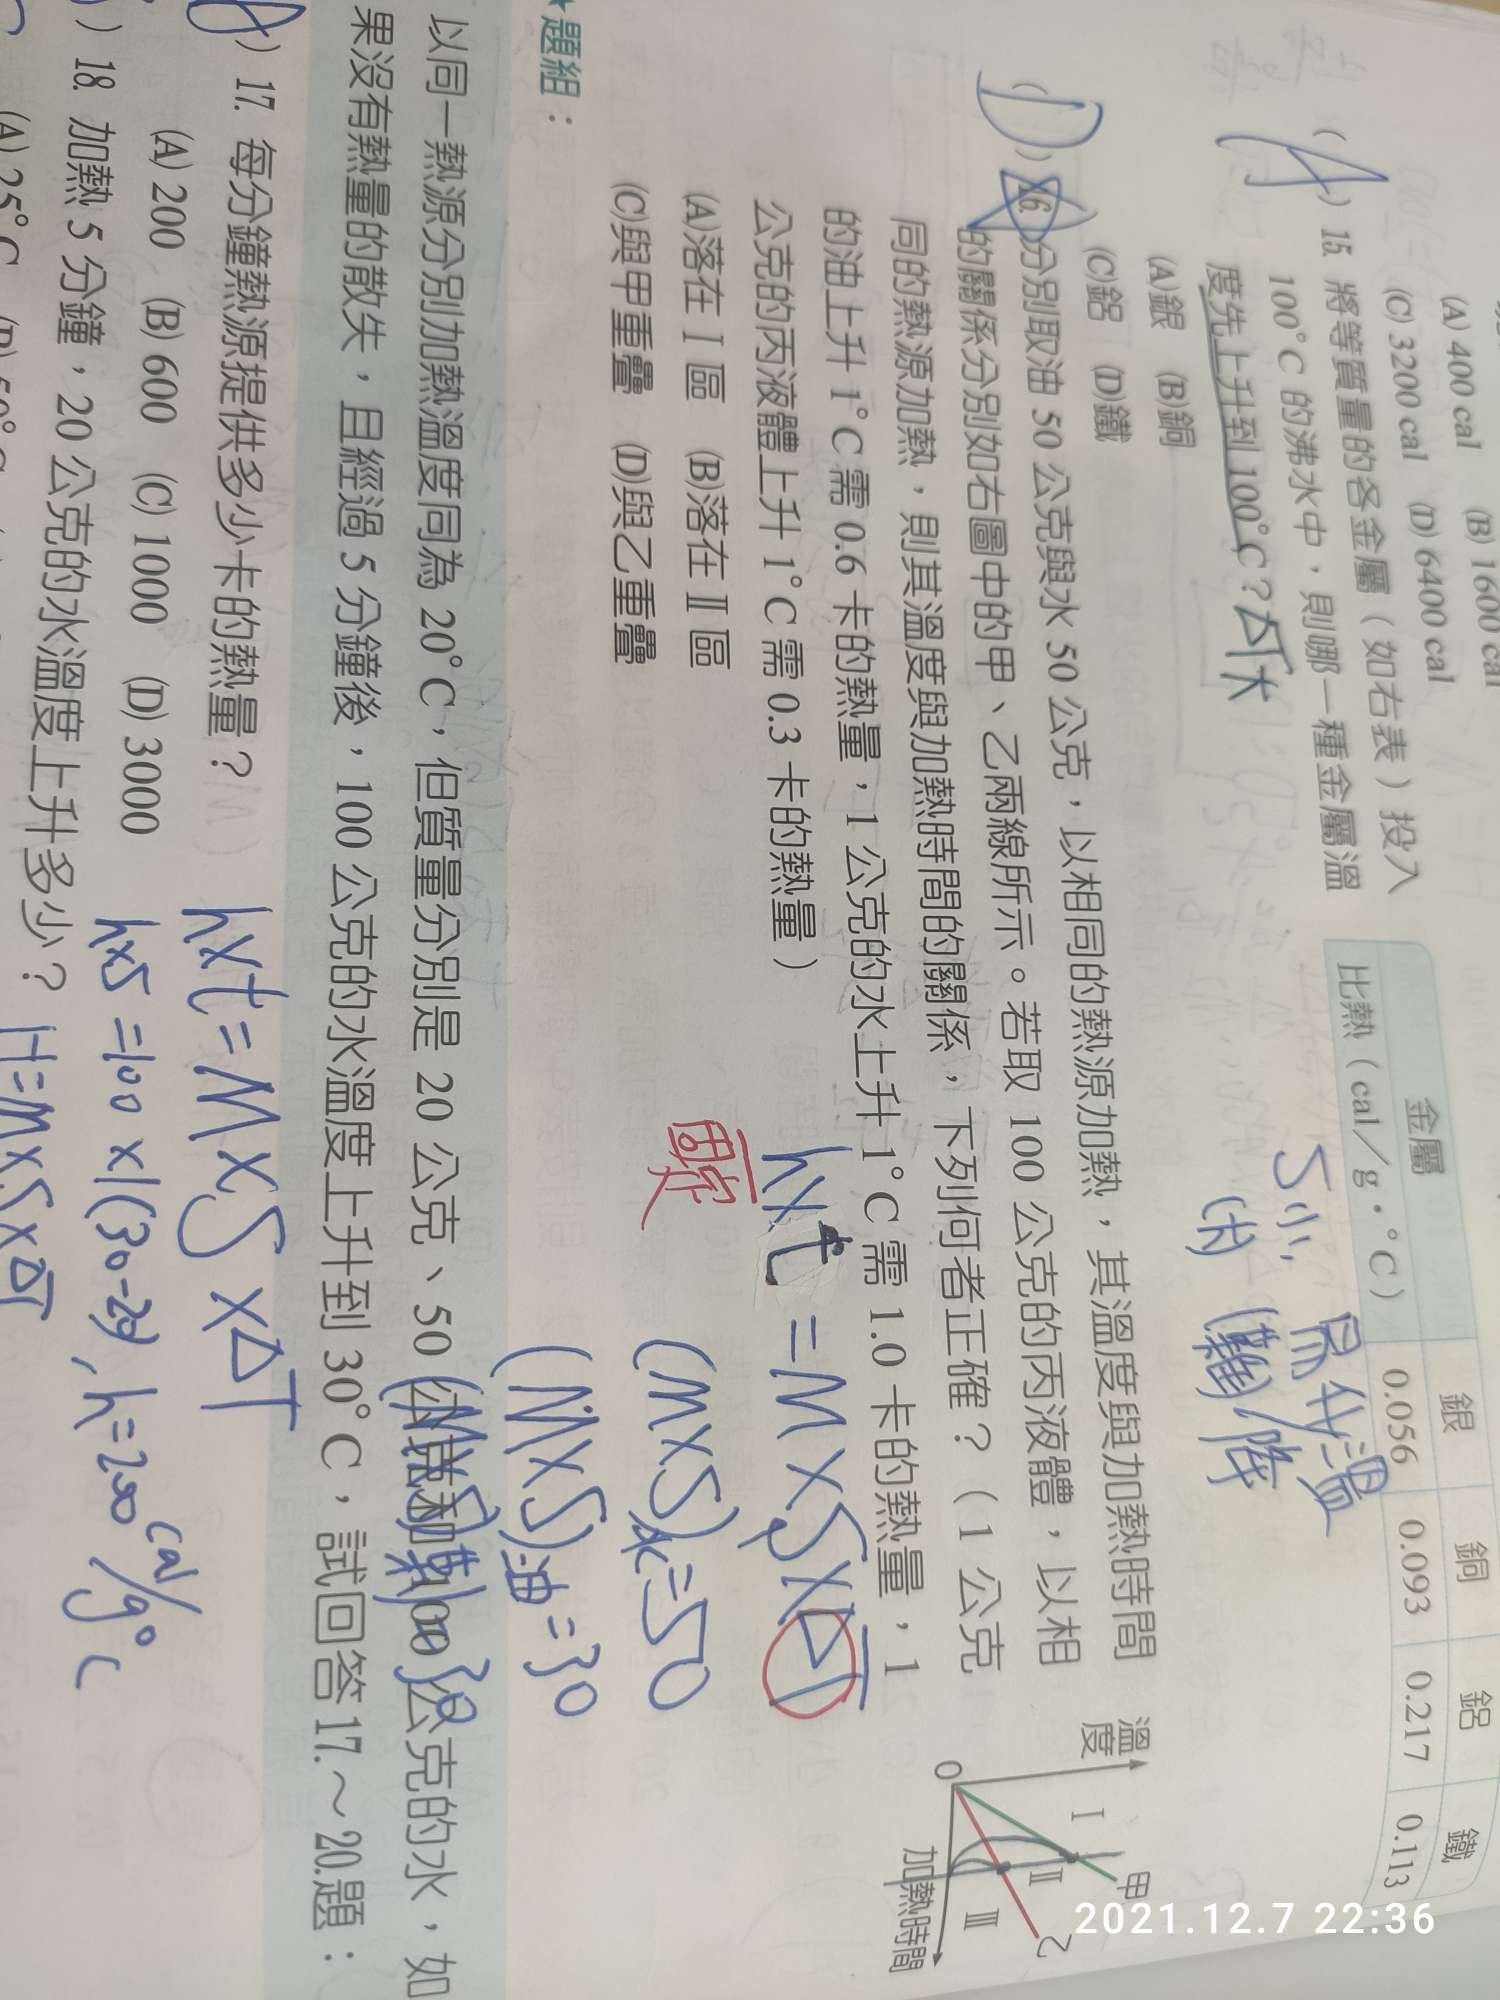 (A) 400 cal (B) 1600 cal
(C) 3200 cal (D) 6400 cal
(A) 15. 將等質量的各金屬（如右表）投入
100°C 的沸水中，則哪一種金屬溫
度先上升到 100°C？
(A)銀 (B)銅
(C)鋁 (D)鐵
金屬 銀 銅 鋁 鐵
比熱（cal／g．°C） 0.056 0.093 0.217 0.113
S小，易升溫
(大) (難)降
(D) 16. 分別取油 50 公克與水 50 公克，以相同的熱源加熱，其溫度與加熱時間
的關係分別如右圖中的甲、乙兩線所示。若取 100 公克的丙液體，以相
同的熱源加熱，則其溫度與加熱時間的關係，下列何者正確？（1 公克
的油上升 1°C 需 0.6 卡的熱量，1 公克的水上升 1°C 需 1.0 卡的熱量，1
公克的丙液體上升 1°C 需 0.3 卡的熱量）
(A)落在 I 區 (B)落在 II 區
(C)與甲重疊 (D)與乙重疊
溫度
I
甲
II
乙
III
0
加熱時間
h×t = M×S×ΔT
固定
(M×S)水=50
(M×S)油=30
30
★題組：
以同一熱源分別加熱溫度同為 20°C，但質量分別是 20 公克、50 公克和 100 公克的水，如
果沒有熱量的散失，且經過 5 分鐘後，100 公克的水溫度上升到 30°C，試回答 17.～20.題：
) 17. 每分鐘熱源提供多少卡的熱量？
(A) 200 (B) 600 (C) 1000 (D) 3000
h×t = M×S×ΔT
h×5 = 100×1(30-20), h=200 cal/g°C
) 18. 加熱 5 分鐘，20 公克的水溫度上升多少？
H=M×S×ΔT
(A) 25°C (B) 50°C
2021.12.7 22:36